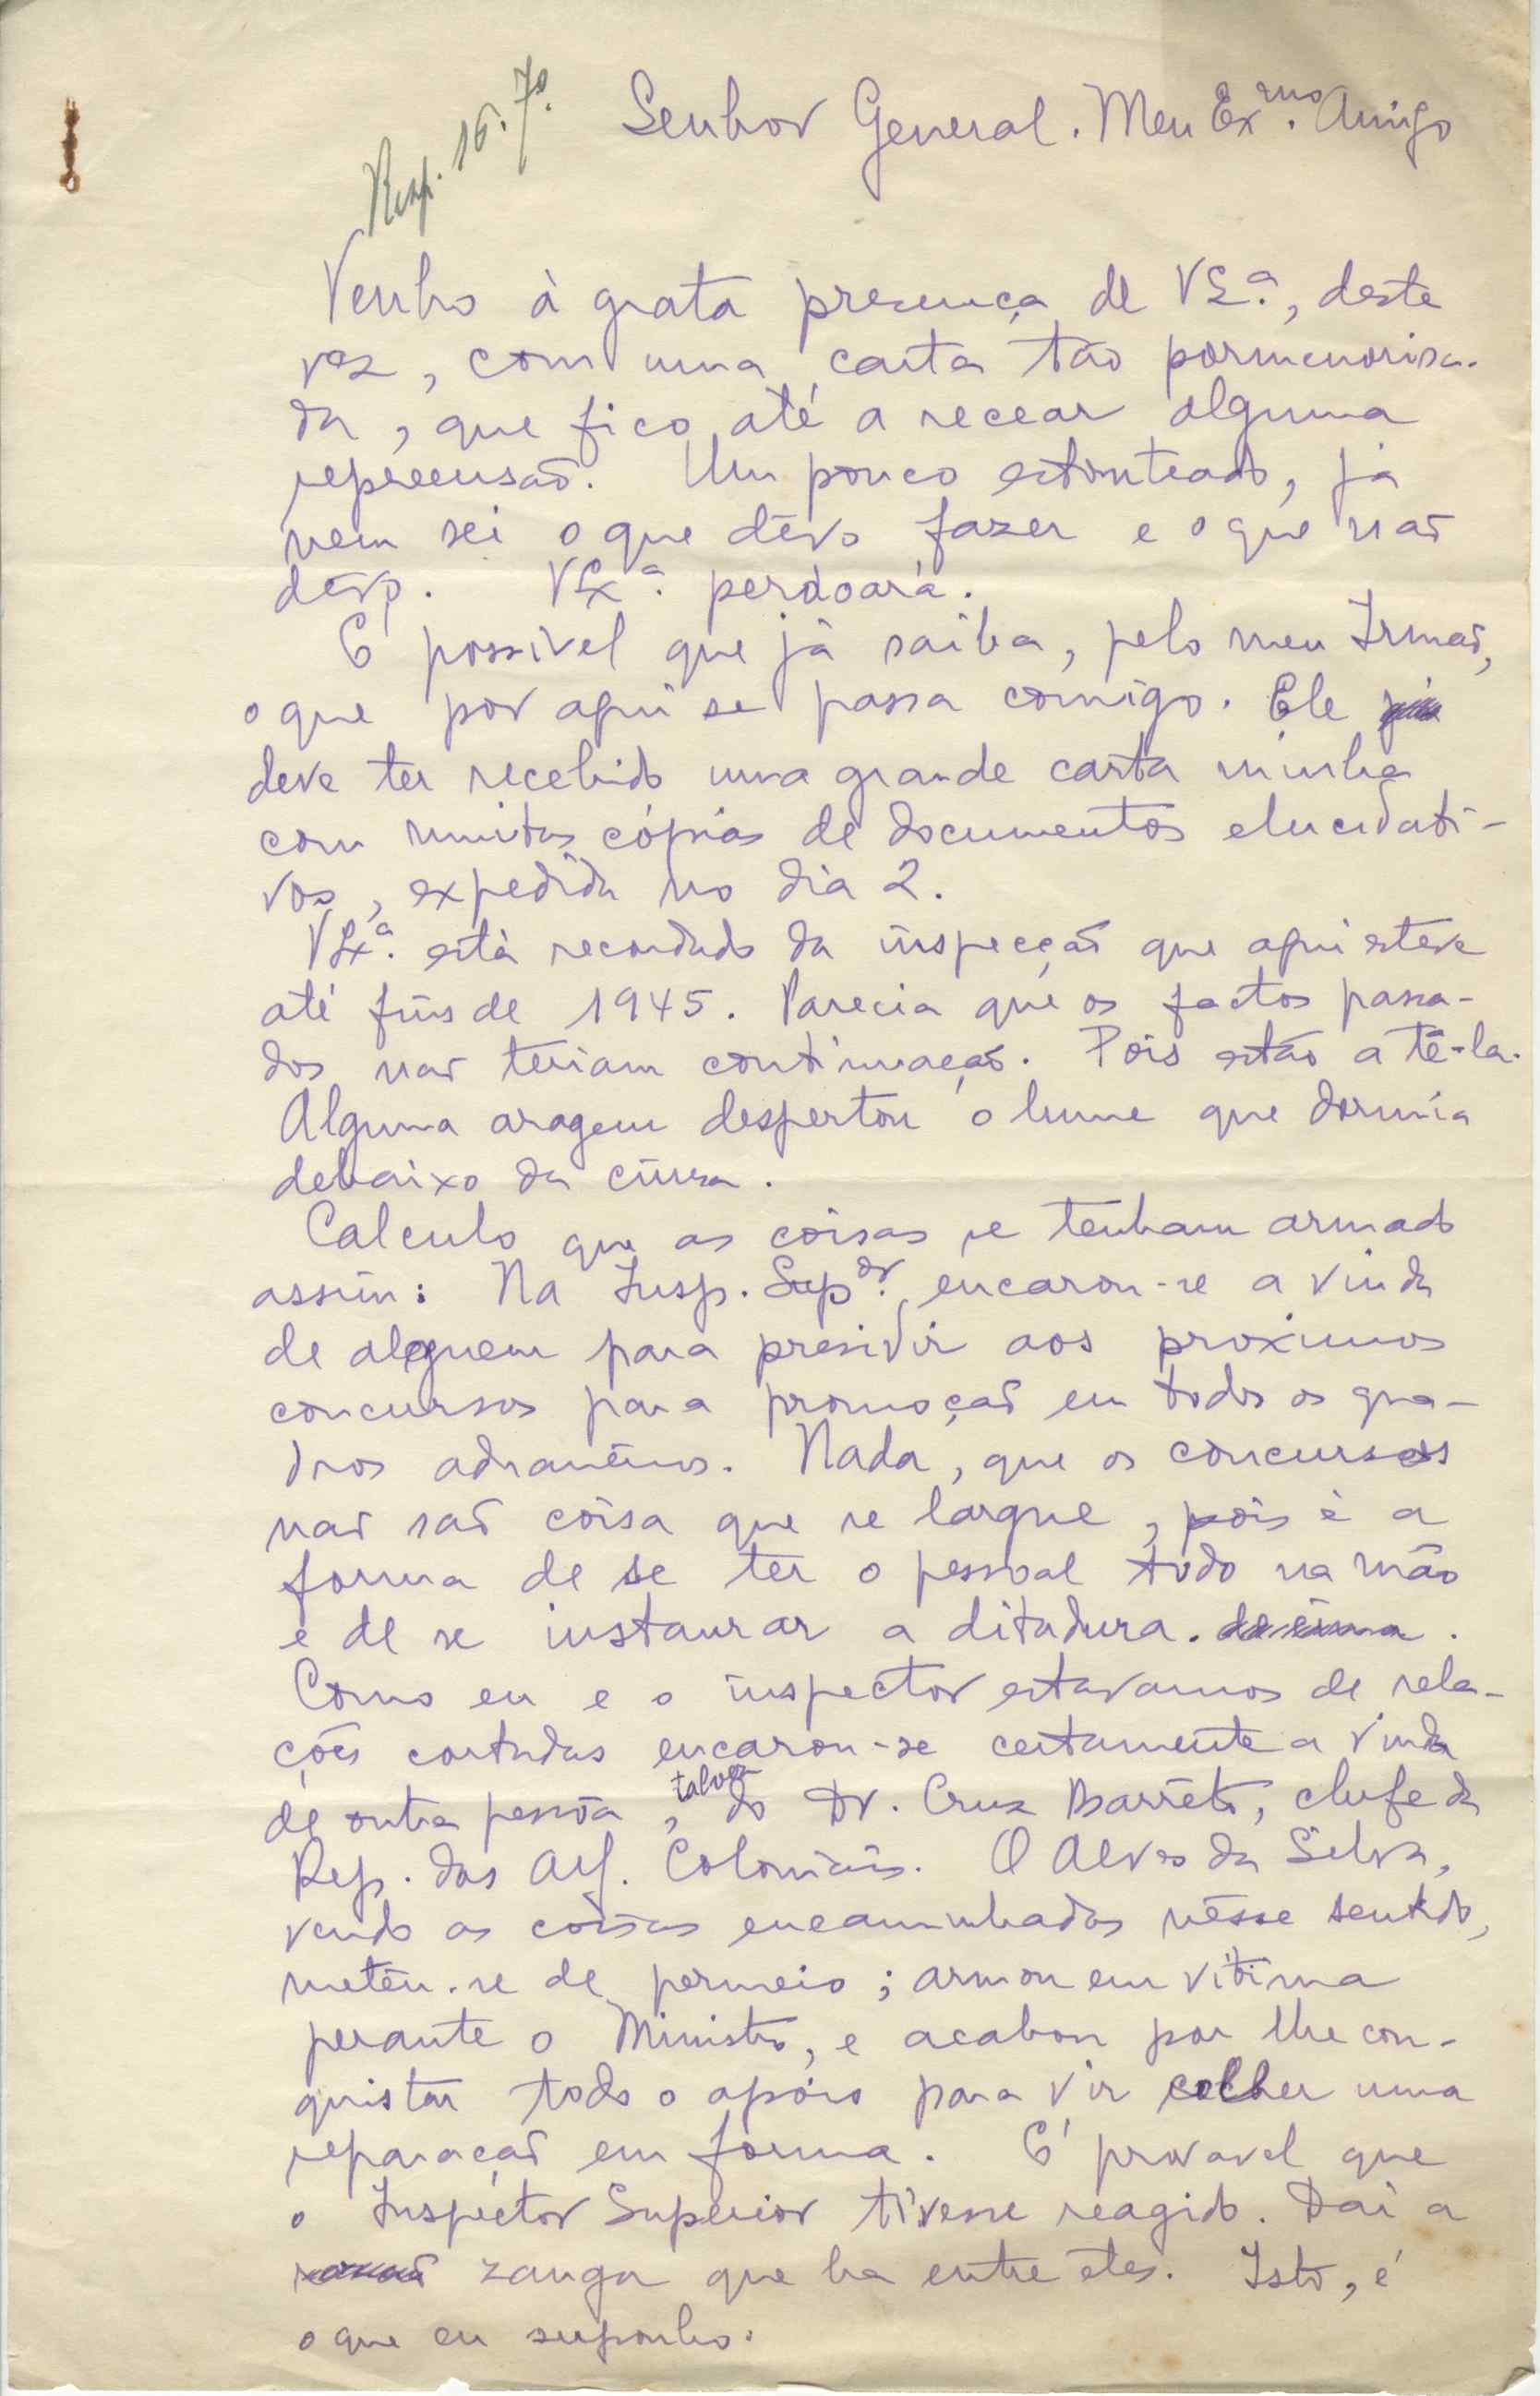 Resp. 16.7º.
Senhor General. Meu Exmo. Amigo
Venho à grata presença de VEª., desta
vez, com uma carta tão pormenorisa-
da, que fico até a recear alguma
repreensão. Um pouco estonteado, já
nem sei o que dévo fazer e o que não
dévo. VExª. perdoará.
É possivel que já saiba, pelo meu Irmão,
o que por aqui se passa comigo. Ele
deve ter recebido uma grande carta minha
com muitas cópias de documentos elucidati-
vos, expedida no dia 2.
VExª. está recordado da inspecção que aqui esteve
até fins de 1945. Parecia que os factos passa-
dos não teriam continuação. Pois estão a tê-la.
Alguma aragem despertou o lume que dormia
debaixo da cinza.
Calculo que as coisas se tenham armado
assim: Na Insp. Supor. encarou-se a vinda
de alguem para presidir aos proximos
concursos para promoção em todos os qua-
dros aduaneiros. Nada, que os concursos
não são coisa que se largue, pois é a
forma de se ter o pessoal todo na mão
e de se instaurar a ditadura.
Como eu e o inspector estavamos de rela-
ções cortadas encarou-se certamente a vinda
de outra pessoa, talvez do Dr. Cruz Barrêto, chefe da
Rep. das Alf. Coloniais. O Alves da Silva,
vendo as coisas encaminhadas nêsse sentido,
metêu-se de permeio; armou em vitima
perante o Ministro, e acabou por lhe con-
quistar todo o apôio para vir colher uma
reparação em forma. É provavel que
o Inspector Superior tivesse reagido. Dai a
zanga que ha entre eles. Isto, é
o que eu suponho.